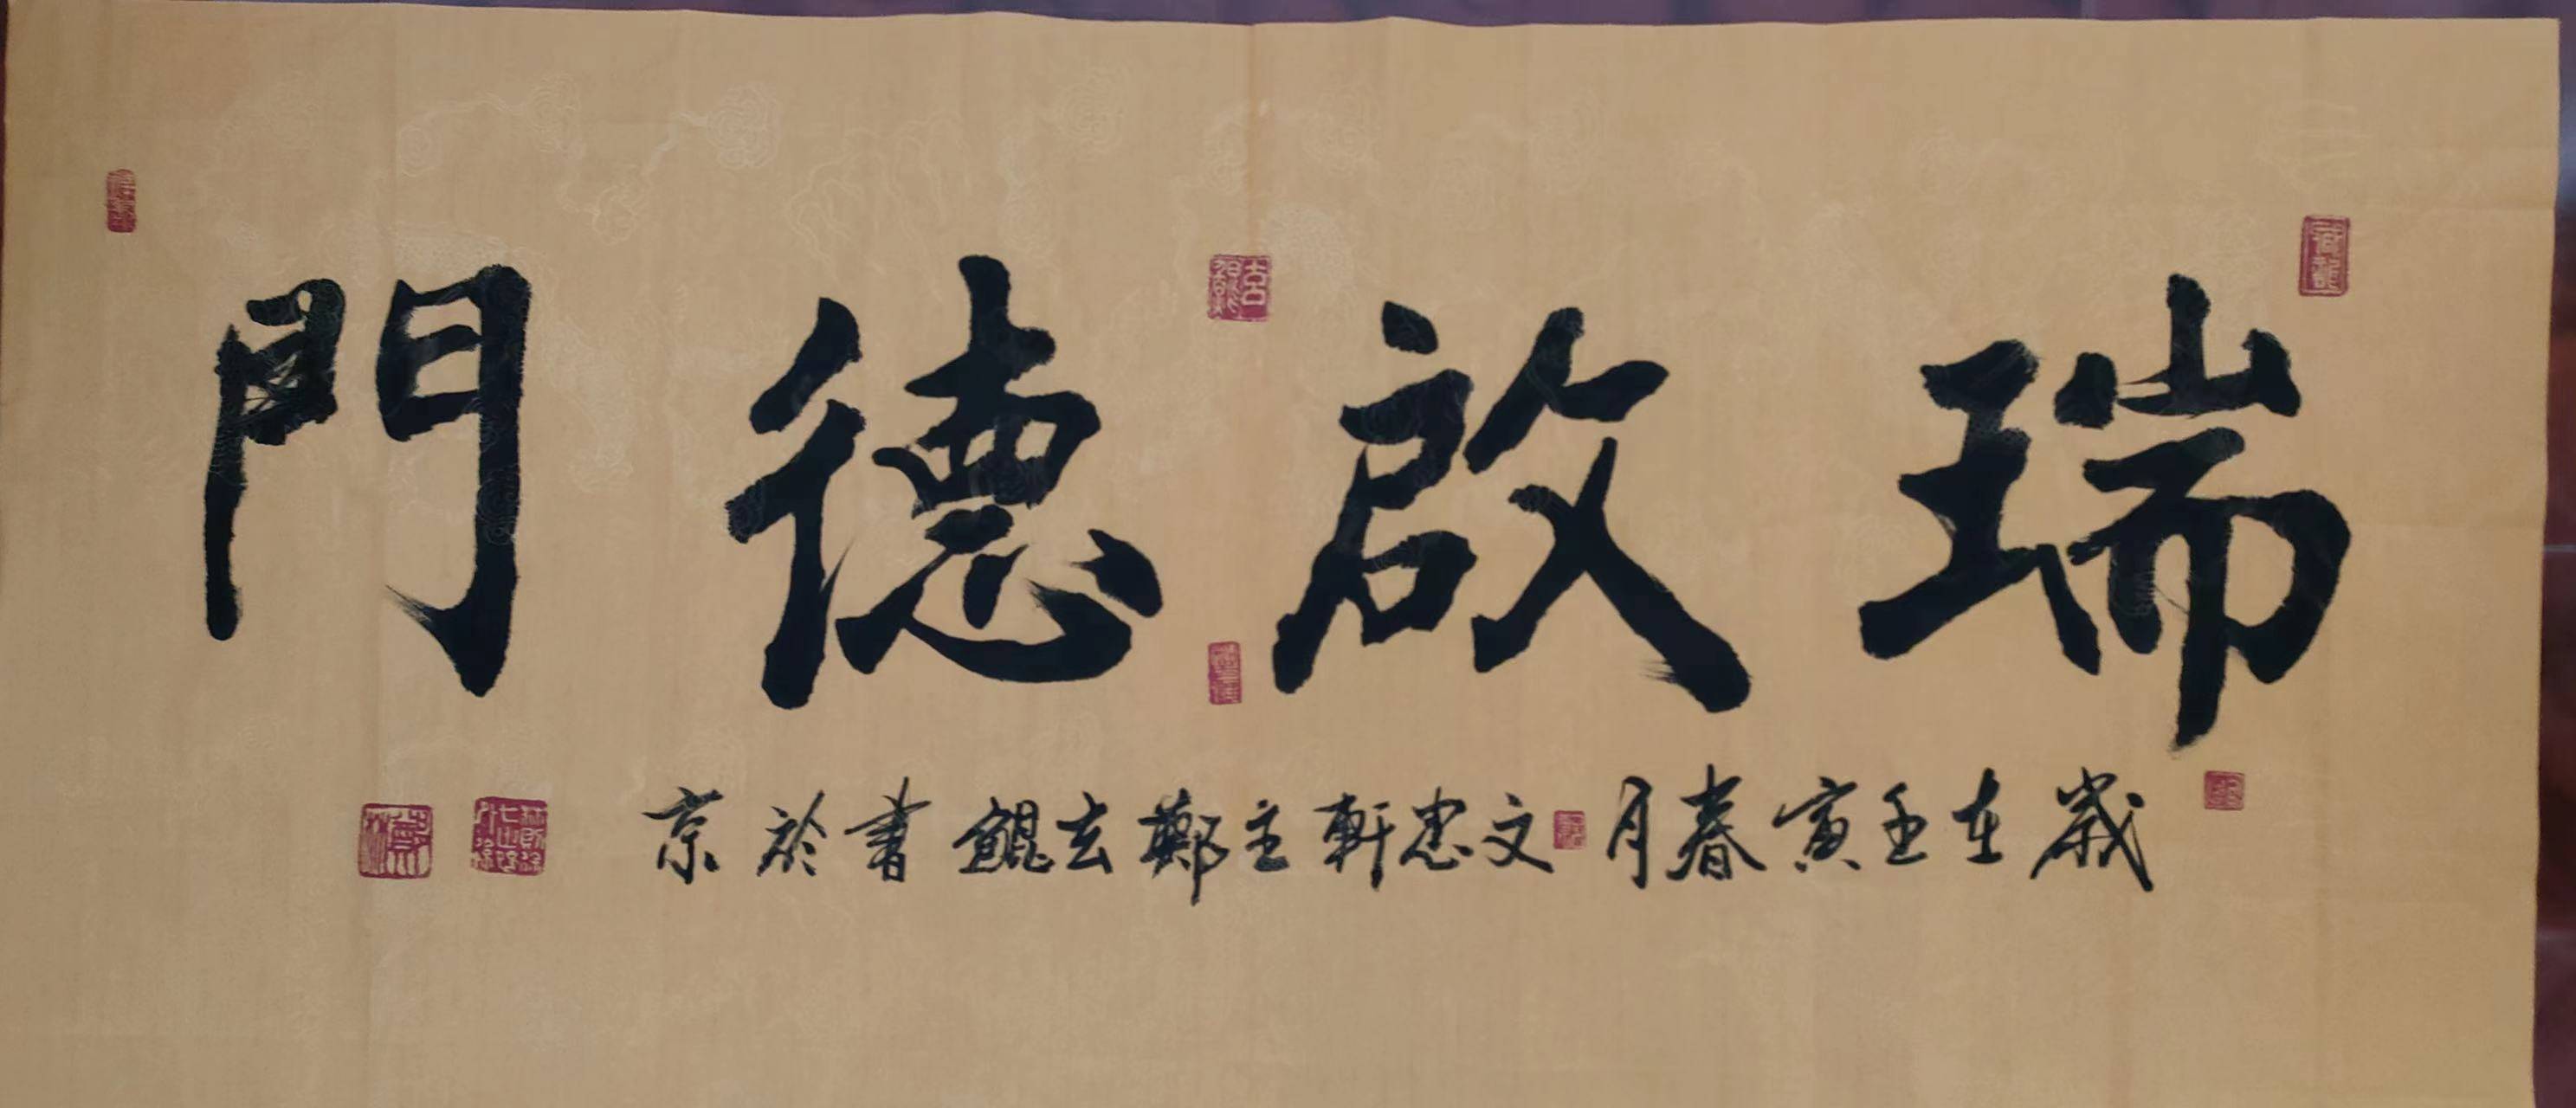 瑞啟德門
歲在壬寅春月文忠軒主鄭玄鯤書於京